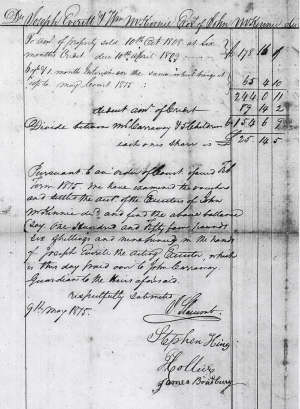 Dr. Joseph Everett & Wm McKinnie Exr of John McKinnie dec
To amt of property sold 10th Oct 1808 at Six
months Credt due 10th April 1809 £ 178 16
6 y & 1 month Interest on the same it being at
up to may Court 1815 65 4 10
244 0 11
deduct amt of Credt 89 14 2
Divide between Mrs Carraway & 5 Children £ 154 6 9
each ones share is £ 25 14 5
Pursuant to an order of Court Feb
Term 1815 We have examined the vouchers
and settle the acct of the Executors of John
McKinnie dec and find the above ballance
(Say One Hundred and fifty four pounds
Six Shillings and nine pence in the hands
of Joseph Everett the acting Executor, which
is this day paid over to John Carraway
Guardian to the Heirs aforesaid.
respectfully Submited
9th May 1815.
Stephen King
J Collier
James Bradbury